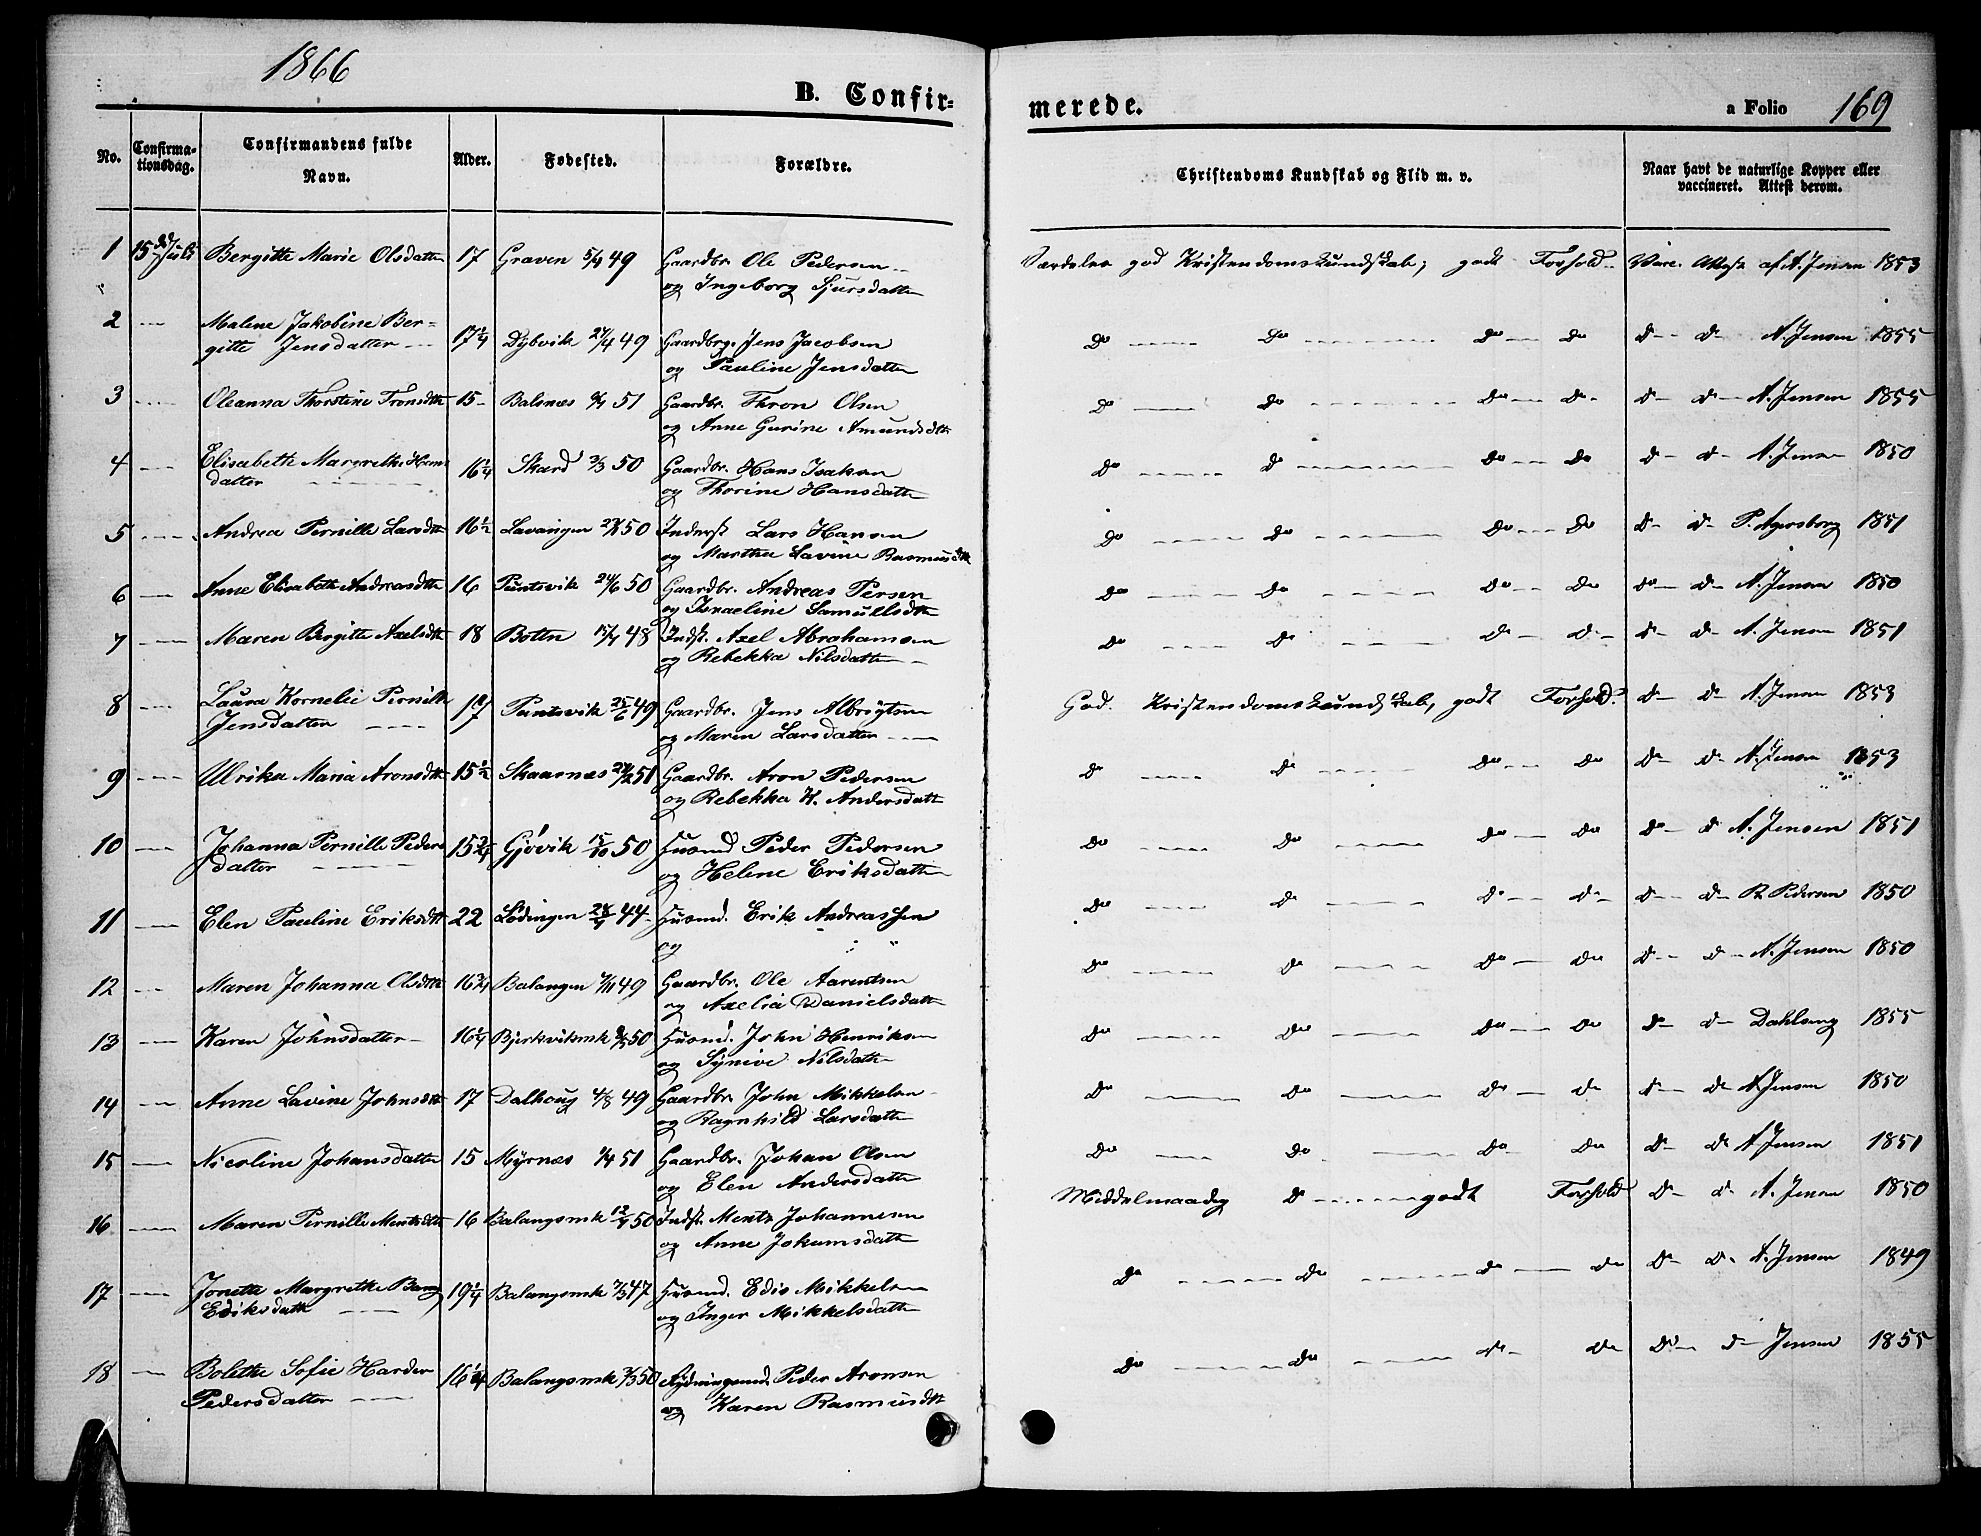 1866
B. Confir=
merede.
a Folio 169
No.
Confirma-
tionsdag.
Confirmandens fulde
Navn.
Alder.
Fødested.
Forældre.
Christendoms Kundskab og Flid m. v.
Naar havt de naturlige Kopper eller
vaccineret. Attest derom.
1 15de Juli Bergitte Marie Olsdatter 17 Graven 49 Gaardbr. Ole Pedersen
og Ingeborg Sjursdatter
Særdeles god Kristendomskundskab; godt Forhold. Vacc. Attest af A. Jensen 1853
2 Malene Jakobine Ber=
gitte Jensdatter 17¼ Dybvik 27/4 49 Gaardbrg. Jens Jacobsen
og Pauline Jensdatter
Do Do Do Do D D A. Jensen 1855
3 Oleanna Thorstine Tronsdttr 15 Balsnæs 51 Gaardbr. Thron Olsen
og Anne Gurine Amundsdttr
Do Do Do Do D D A. Jensen 1855
4 Elisabeth Margrethe Hans
datter 16¼ Skard 50 Gaardbr. Hans Isaksen
og Thorine Hansdatter
Do D Do Do D D A. Jensen 1850
5 Andrea Pernille Larsdttr 16½ Lavangen 50 Inderst Lars Hansen
og Marthea Lavine Rasmusdttr
Do Do Do Do D D P. Agersborg 1851
6 Anne Elisabeth Andreasdttr 16 Puntsvik 24/6 50 Gaardbr. Andreas Persen
og Israeline Samullsdttr
Do Do Do Do Do D A. Jensen 1850
7 Maren Bergitte Axelsdttr 18 Botten 48 Indst. Axel Abrahamsen
og Rebekka Nilsdatter
Do Do D D D D A. Jensen 1851
8 Laura Kornelie Pernille
Jensdatter 17 Puntsvik 25/6 49 Gaardbr. Jens Albrigtsen
og Maren Larsdatter
God Kristendomskundskab, godt Forhold. D D A. Jensen 1853
9 Ulrika Maria Aronsdttr 15½ Skaarnæs 51 Gaardbr. Aron Pedersen
og Rebekka K. Andersdatt
Do Do Do Do D D A. Jensen 1853
10 Johanna Pernille Peders
datter 15¾ Gjøvik 15/10 50 Husmd Peder Pedersen
og Helene Eriksdatter
Do Do Do Do D D A. Jensen 1851
11 Elen Pauline Eriksdttr 22 Lødingen 44 Husmd. Erik Andreassen
og
Do Do D D D D R. Pedersen 1850
12 Maren Johanna Olsdttr 16¾ Balangen 49 Gaardbr. Ole Aarentsen
og Axelia Danielsdatter
Do Do Do Do D D A. Jensen 1850
13 Karen Johnsdatter 16¼ Bjerkviksmk 50 Husmd. John Henriksen
og Synive Nilsdatter
Do Do Do Do D D Dahlseng 1855
14 Anne Lavine Johnsdttr 17 Dalhoug 4/8 49 Gaardbr. John Mikkelsen
og Ragnhild Larsdatter
Do Do Do Do D D A. Jensen 1850
15 Nicoline Johansdatter 15 Myrnæs 51 Gaardbr. Johan Olsen
og Elen Andersdatter
Do Do Do Do D D A. Jensen 1851
16 Maren Pernille Mentsdttr 16 Balangsmk 50 Indst. Mentz Johannesen
og Anne Jokumsdatter
Middelmaadig D godt Forhold D D A. Jensen 1850
17 Jonette Margrethe Bang
Ediksdatter 19¼ Balangsmk 47 Husmd. Edis Mikkelsen
og Inger Mikkelsdatter
Do Do Do Do D D A. Jensen 1849
18 Bolette Sofie Harder
Pedersdatter 16¼ Balangsmk 50 Rydningsmd. Peder Aronsen
og Karen Rasmusdttr
Do Do Do Do D D Jensen 1855